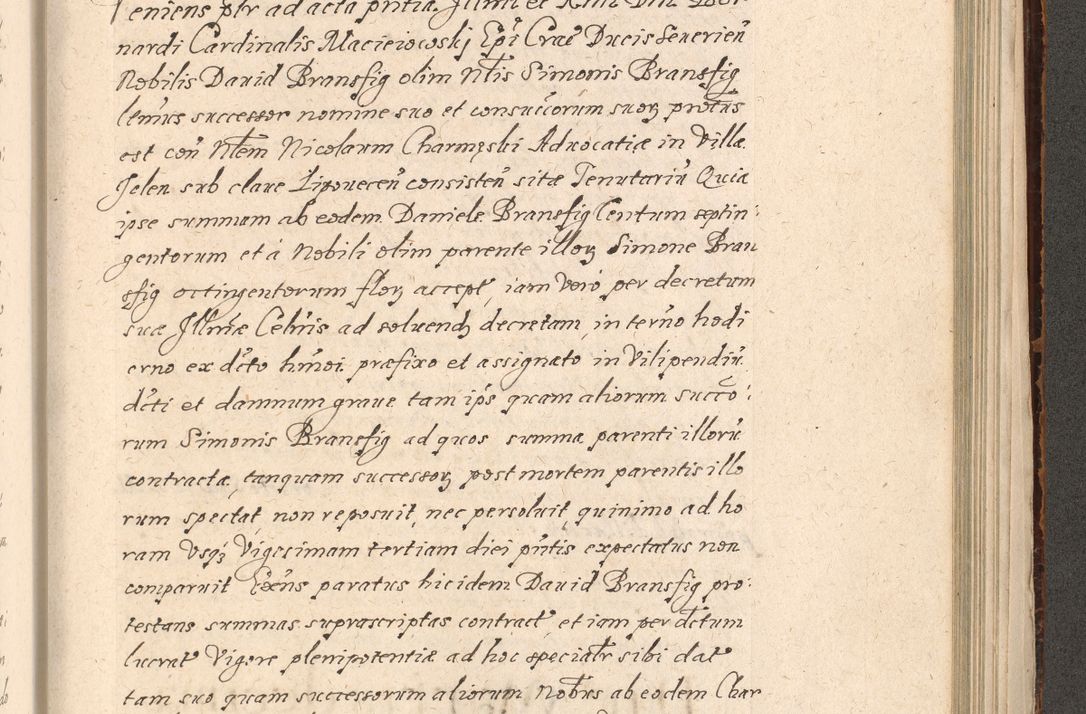 eniens płr ad acta pñtia Illmi et Rñdi Dñi Ber
nardi Cardinalis Macieiowskj Epi Crac Ducis Seuerień
Nobilis Dauid Bransfig olim Ntis Simonis Bransfig
lemus successor nomine suo et consuccorum suorꝫ protus
est con Ntem Nicolaum Charmęski Aduocatiæ in Villa
Jelen sub claue Lipouecen consisten sitæ Tenutariũ Quia
ipse summam ab eodem Daniele Bransfig Centum septin:
gentorum et à Nobili olim parente illorꝫ Simone Bran
sfig octingentorum florꝫ accept, iam vero per decretum
suæ Illmæ Celnis ad soluendꝫ decretam, in terno hodi
erno ex dcto hmoi præfixo et assignato, in Vilipendiũ
dcti et damnum graue tam ips quam aliorum succo:
rum Simonis Bransfig ad quos summa parenti illorũ
contracta, tanquam successorꝫ post mortem parentis illo
rum spectat, non reposuit, nec persoluit, quinimo ad ho
ram Vsqꝫ Vigesimam tertiam diei pñtis expectatus non
comparuit Exñs paratus hic idem Dauid Bransfig pro:
testans summas suprascriptas contract, et iam per dctum
lucrat Vigore plenipotentiæ ad hoc specialr sibi dat
tam suo quam successorum aliorum Nobrs ab eodem Char